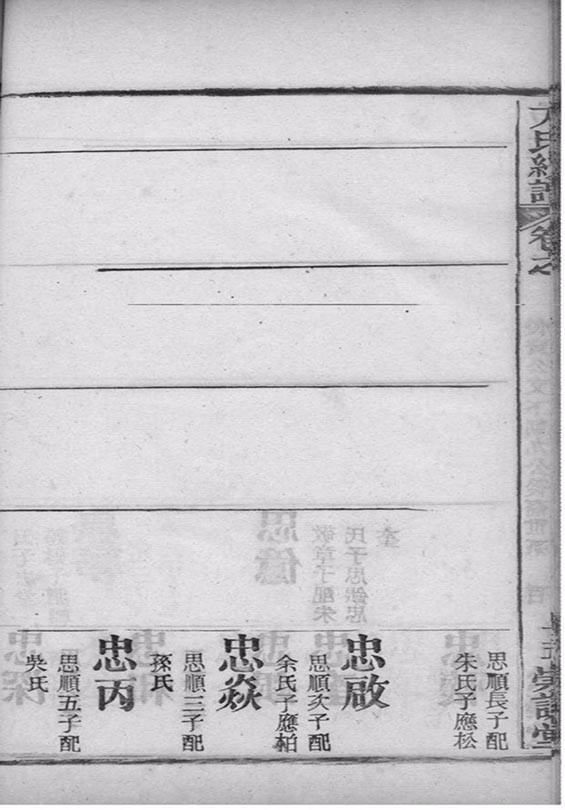 卷之
思順長子配
朱氏子應松
忠啟
思順次子配
余氏子應柏
忠焱
思順三子配
孫氏
忠丙
思順五子配
吳氏